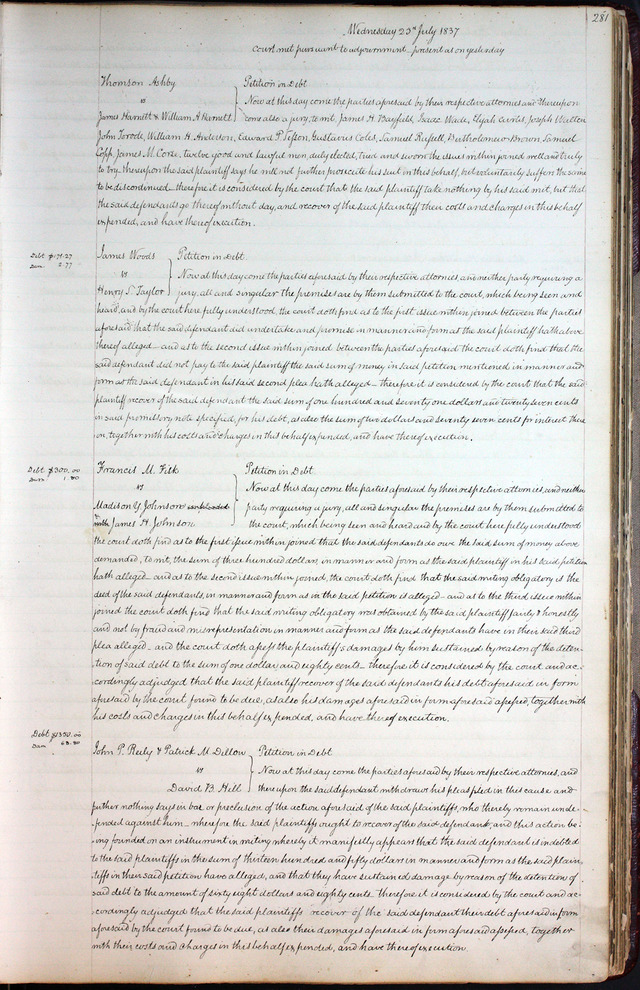 281
Wednesday 23rd July 1837
Court met pursuant to adjournment – present as on yesterday
Thomson Ashby
vs
James Harnett & William A Harnett
Petition in Debt
Now at this day come the parties aforesaid by their respective attornies and thereupon
come also a jury, to wit, James H. Bayfield, Isaac Wade, Elijah Carles, Joseph Walton
John Torode, William H. Anderson, Edward P. Tesson, Gustavus Coles, Samuel Russell, Bartholomew Brown, Samuel
Copp, James M. Corse, twelve good and lawful men, duly elected, tried and sworn the issues within joined well and truly
to try, thereupon the said plaintiff says he will not further prosecute his suit in this behalf, but voluntarily suffers the same
to be discontinued – therefore it is considered by the court that the said plaintiff take nothing by his said writ, but that
the said defendants go thereof without day, and recover of the said plaintiff their costs and charges in this behalf
expended, and have thereof execution.
Debt $171.27
Dam 2.77
James Woods
vs
Henry S. Taylor
Petition in Debt.
Now at this day come the parties aforesaid by their respective attornies, and neither party requiring a
jury, all and singular the premises are by them submitted to the court, which being seen and
heard, and by the court here fully understood, the court doth find as to the first issue within joined between the parties
aforesaid that the said defendant did undertake and promise in manner and form as the said plaintiff hath above
thereof alleged – and as to the second issue within joined between the parties aforesaid the court doth find that the
said defendant did not pay to the said plaintiff the said sum of money in said petition mentioned in manner and
form as the said defendant in his said second plea hath alleged – Therefore it is considered by the court that the said
plaintiff recover of the said defendant the said sum of one hundred and seventy one dollars and twenty seven cents
in said promissory note specified, for his debt, as also the sum of two dollars and seventy seven cents for interest there
on, together with his costs and charges in this behalf expended, and have thereof execution.
Debt $300.00
Dam 1.80
Francis M. Fisk
vs
Madison Y. Johnson
with James H. Johnson
Petition in Debt.
Now at this day come the parties aforesaid by their respective attornies, and neither
party requiring a jury, all and singular the premises are by them submitted to
the court, which being seen and heard and by the court here fully understood
the court doth find as to the first issue within joined that the said defendants do owe the said sum of money above
demanded, to wit, the sum of three hundred dollars, in manner and form as the said plaintiff in his said petition
hath alleged – and as to the second issue within joined, the court doth find that the said writing obligatory is the
deed of the said defendants, in manner and form as in the said petition is alleged – and as to the third issue within
joined the court doth find that the said writing obligatory was obtained by the said plaintiff fairly & honestly
and not by fraud and misrepresentation in manner and form as the said defendants have in their said third
plea alleged – and the court doth assess the plaintiff's damages by him sustained by reason of the deten-
tion of said debt to the sum of one dollar and eighty cents – therefore it is considered by the court and ac-
cordingly adjudged that the said plaintiff recover of the said defendants his debt aforesaid in form
aforesaid by the court found to be due, as also his damages aforesaid in form aforesaid assessed, together with
his costs and charges in this behalf expended, and have thereof execution.
Debt $1350.00
Dam 68.80
John P. Reily & Patrick M. Dillow
vs
David B. Hill
Petition in Debt
Now at this day come the parties aforesaid by their respective attornies, and
thereupon the said defendant withdraws his plea pled in this cause and
further nothing says in bar or preclusion of the action aforesaid of the said plaintiffs, who thereby remain unde-
fended against him – wherefore the said plaintiffs ought to recover of the said defendant, and this action be-
ing founded on an instrument in writing whereby it manifestly appears that the said defendant is indebted
to the said plaintiffs in the sum of thirteen hundred and fifty dollars in manner and form as the said plain-
tiffs in their said petition have alleged, and that they have sustained damage by reason of the detention of
said debt to the amount of sixty eight dollars and eighty cents. Therefore it is considered by the court and ac-
cordingly adjudged that the said plaintiffs recover of the said defendant their debt aforesaid in form
aforesaid by the court found to be due, as also their damages aforesaid in form aforesaid assessed, together
with their costs and charges in this behalf expended, and have thereof execution.